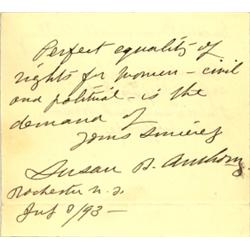 Perfect equality of
rights for women - civil
and political - is the
demand of
Yours sincerely
Susan B. Anthony
Rochester N. Y.
/93 -